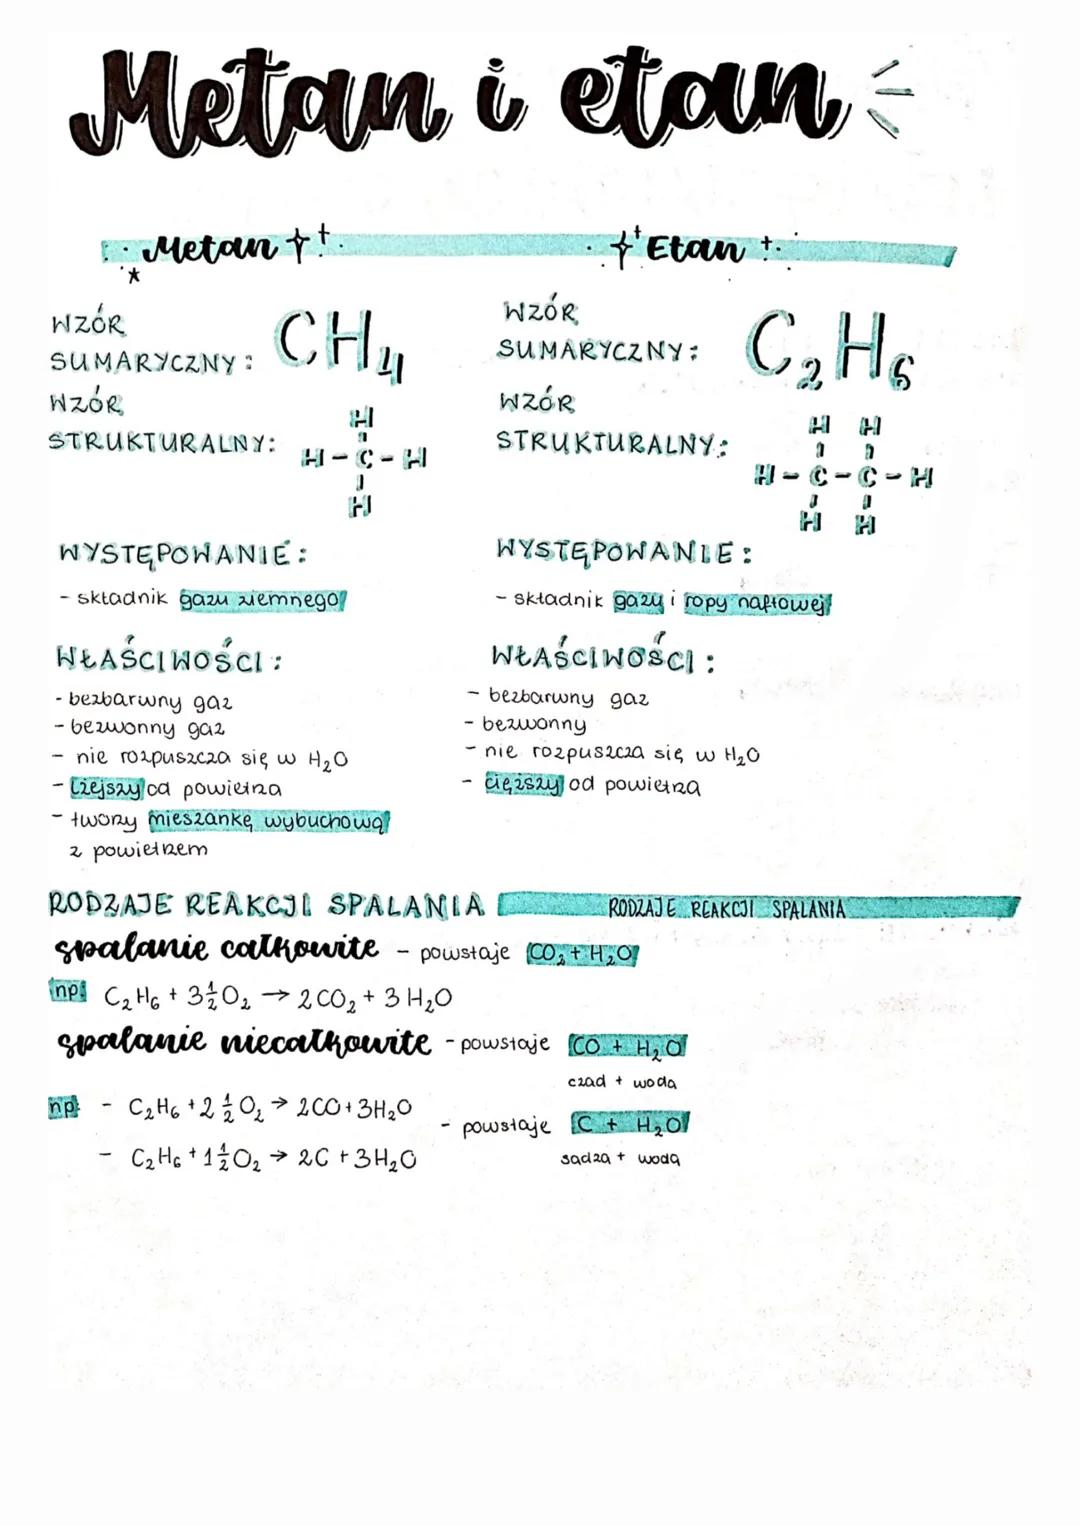 Metan i etan
Metan
Etan
WZÓR
SUMARYCZNY: CH₄
WZÓR
STRUKTURALNY:
H
H-C-H
H
WYSTĘPOWANIE:
- składnik gazu ziemnego
WŁAŚCIWOŚCI:
- bezbarwny gaz
- bezwonny gaz
- nie rozpuszcza się w H₂O
- lżejszy od powietrza
- tworzy mieszankę wybuchową
z powietrzem
WZÓR
SUMARYCZNY: C₂H₆
WZÓR
STRUKTURALNY:
H H
H-C-C-H
H H
WYSTĘPOWANIE:
- składnik gazu i ropy naftowej
WŁAŚCIWOŚCI:
- bezbarwny gaz
- bezwonny
- nie rozpuszcza się w H₂O
- cięższy od powietrza
RODZAJE REAKCJI SPALANIA RODZAJE REAKCJI SPALANIA
spalanie całkowite - powstaje CO₂ + H₂O
np. C₂H₆ + 3½O₂ → 2CO₂ + 3H₂O
spalanie niecałkowite - powstaje CO + H₂O
czad + woda
np. - C₂H₆ + 2½O₂ → 2CO + 3H₂O
- powstaje C + H₂O
- C₂H₆ + 1½O₂ → 2C + 3H₂O
sadza + woda